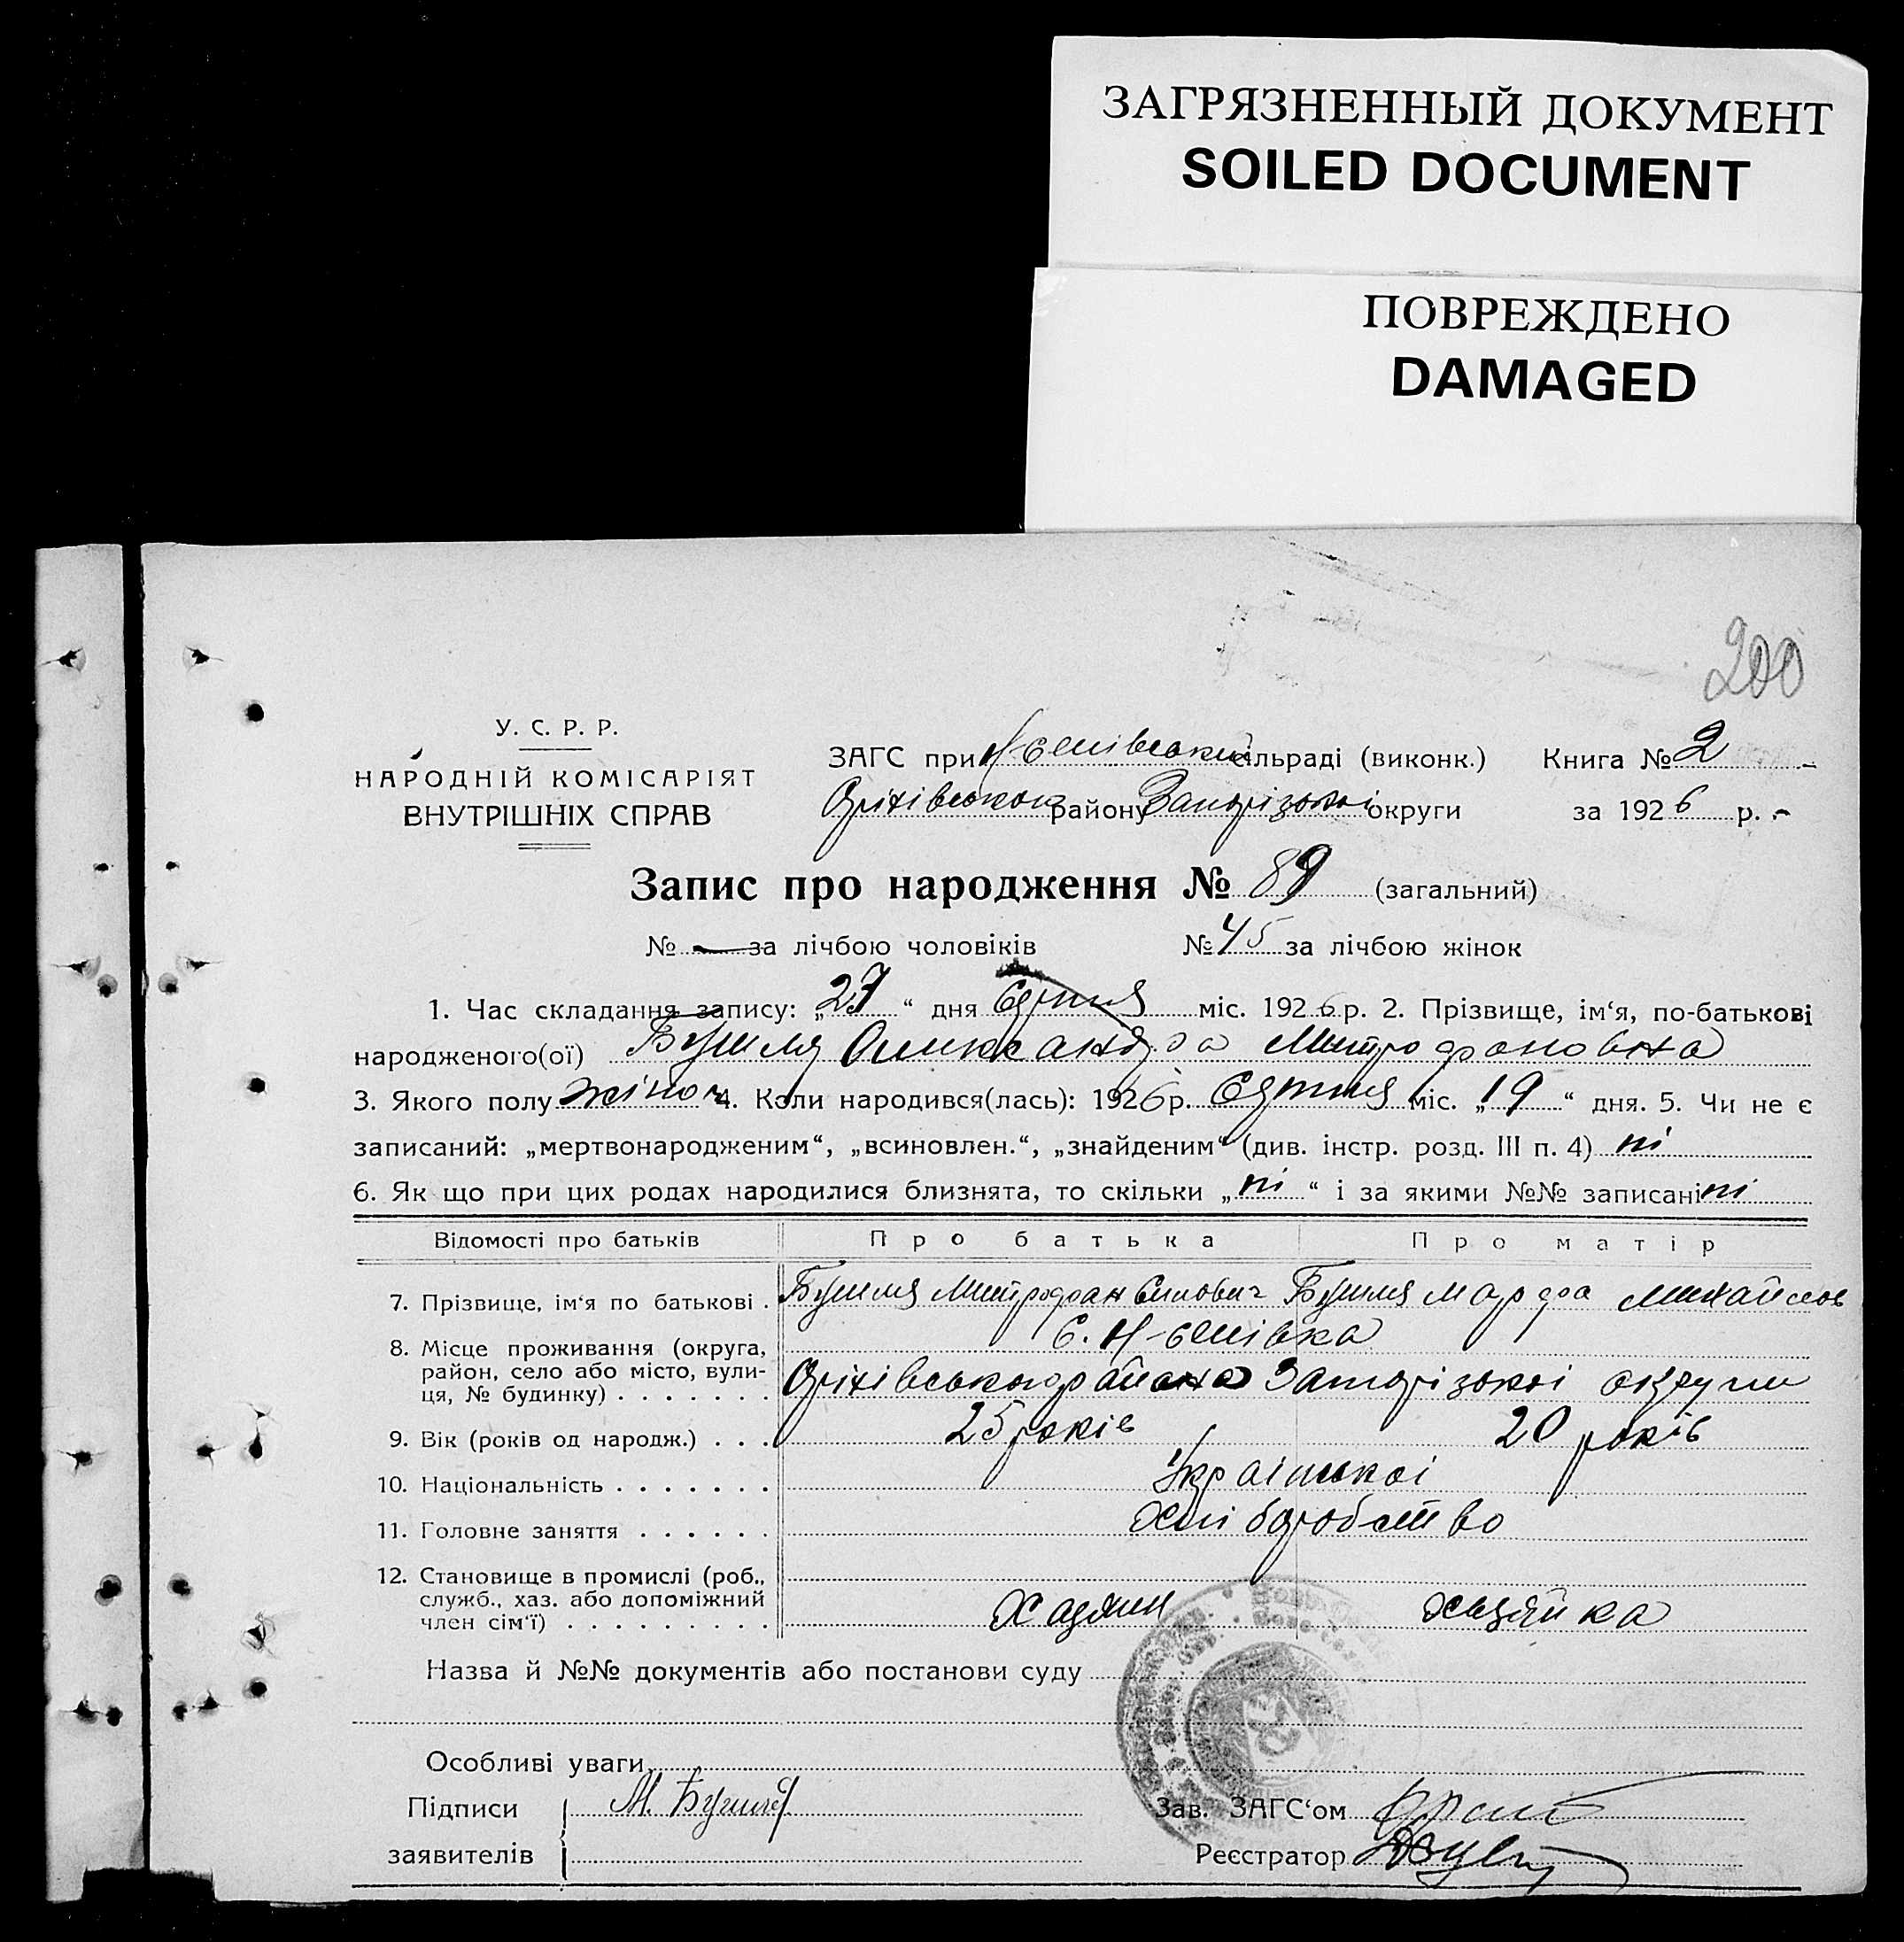 ЗАГРЯЗНЕННЫЙ ДОКУМЕНТ
SOILED DOCUMENT
ПОВРЕЖДЕНО
DAMAGED
200
У. С. Р. Р.
НАРОДНІЙ КОМІСАРІЯТ
ВНУТРІШНІХ СПРАВ
ЗАГС при сільраді (виконк.) Книга № 2
Оріхівського району Запорізької округи за 1926 р.
Запис про народження № 89 (загальний)
№ — за лічбою чоловіків № 45 за лічбою жінок
1. Час складання запису: „27“ дня Серпня міс. 1926 р. 2. Прізвище, ім‘я, по-батькові
народженого(ої) Олександра Митрофановна
3. Якого полу жіноч 4. Коли народився(лась): 1926 р. Серпня міс. „19“ дня. 5. Чи не є
записаний: „мертвонародженим“, „всиновлен.“, „знайденим“ (див. інстр. розд. III п. 4) ні
6. Як що при цих родах народилися близнята, то скільки „ні“ і за якими №№ записані ні
Відомості про батьків Про батька Про матір
7. Прізвище, ім‘я по батькові . Митрофан Марфа Михайлов
8. Місце проживання (округа,
район, село або місто, вули-
ця, № будинку) . . . . . . . Оріхівського района Запорізької округи
9. Вік (років од народж.) . . . 25 років 20 років
10. Національність . . . . . . . Української
11. Головне заняття . . . . . . Хліборобство
12. Становище в промислі (роб.,
служб., хаз. або допоміжний
член сім‘ї) . . . . . . . . . Хазяин хазяйка
Назва й №№ документів або постанови суду
Особливі уваги
Підписи М. Зав. ЗАГС‘ом
заявителів Реєстратор